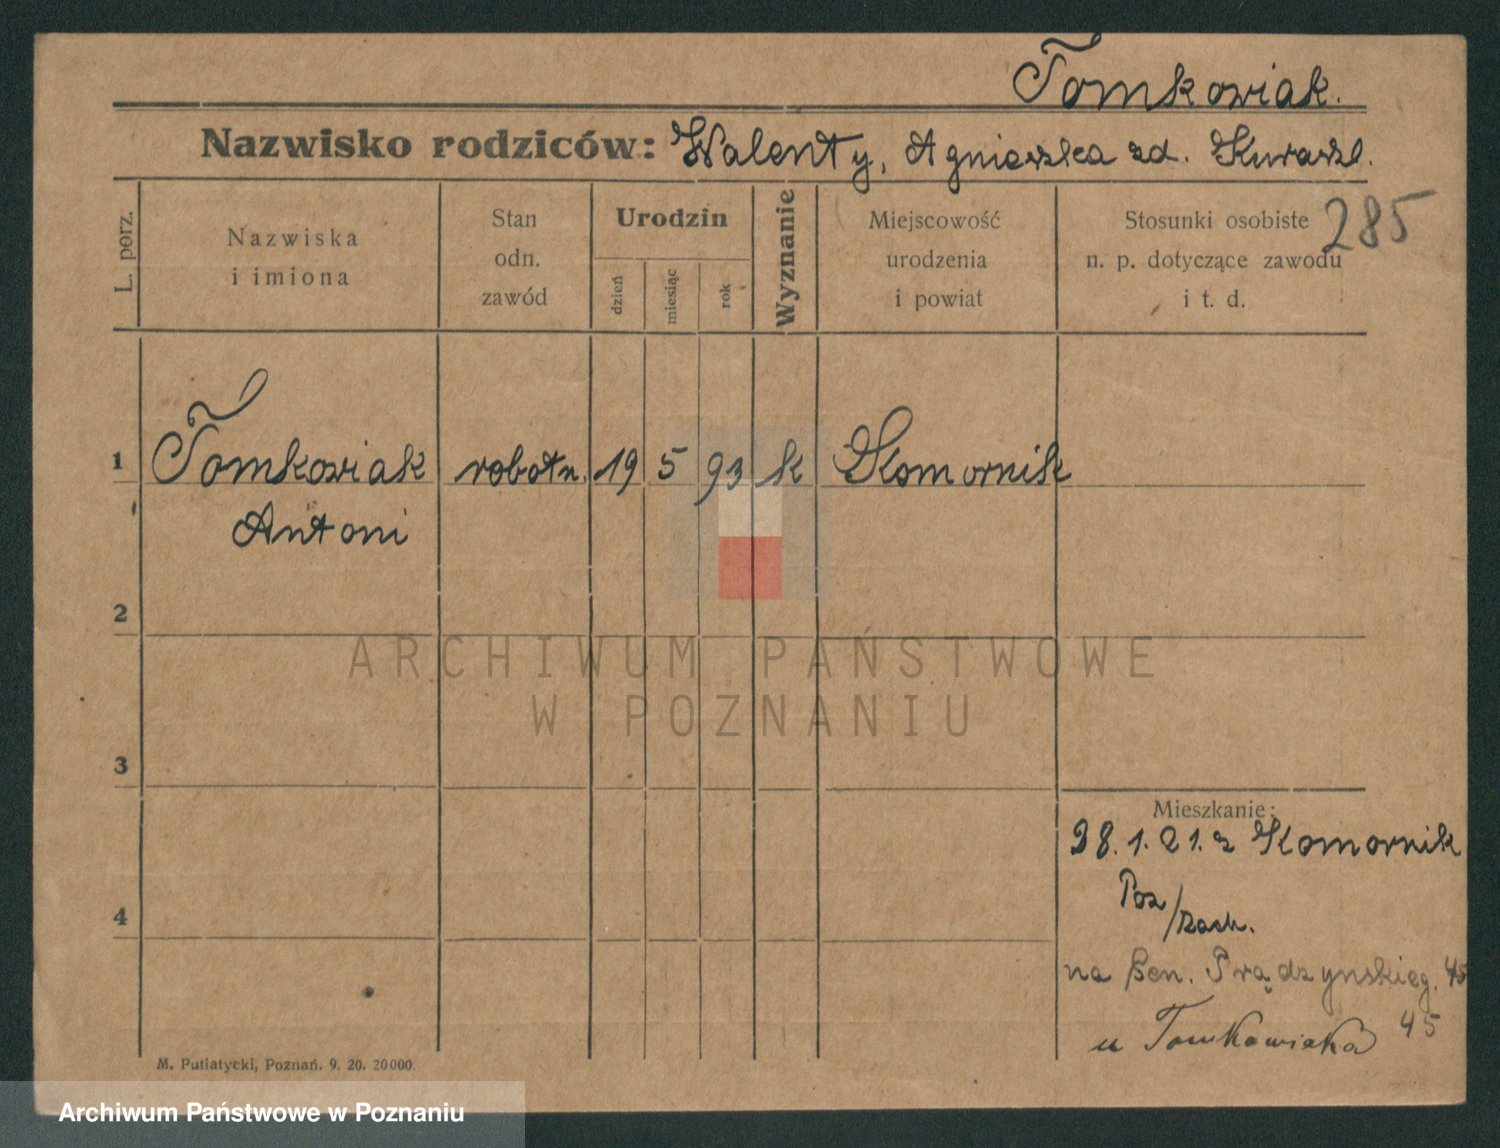 Tomkowiak.
Nazwisko rodziców: Walenty, Agnieszka zd.
285
L. porz.
Nazwiska
i imiona
Stan
odn.
zawód
Urodzin
dzień
miesiąc
rok
Wyznanie
Miejscowość
urodzenia
i powiat
Stosunki osobiste
n. p. dotyczące zawodu
i t. d.
1 Tomkowiak robotn. 19 5 93 k Komornik
Antoni
2
3
4
ARCHIWUM PAŃSTWOWE
W POZNANIU
Mieszkanie:
28. 1. 21. z Komornik
Poz/zach.
na Gen. Prądzynskieg. 45
45
u Tomkowiaka
M. Putiatycki, Poznań. 9. 20. 20000.
Archiwum Państwowe w Poznaniu